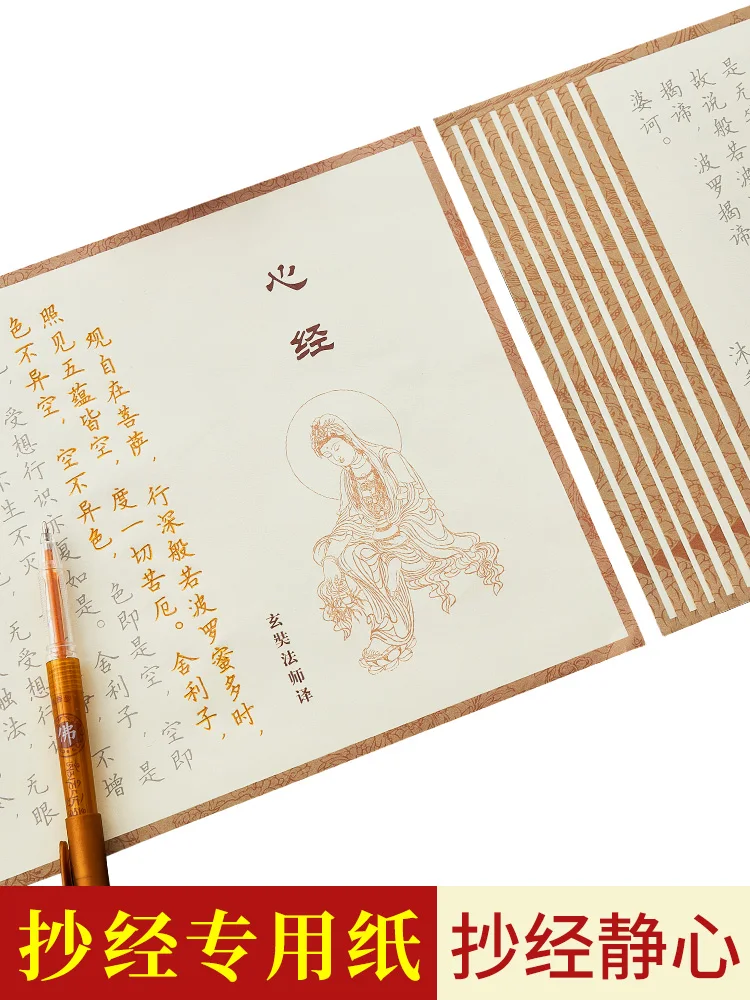 心经
玄奘法师译
观自在菩萨，行深般若波罗蜜多时，
照见五蕴皆空，度一切苦厄。舍利子，
色不异空，空不异色，色即是空，空即
受想行识亦复如是。舍利子，是
生不灭，不增
无受想行
触法，无眼
是无
故说般若波
揭谛，波罗揭谛
婆诃。
沐
佛
抄经专用纸
抄经静心